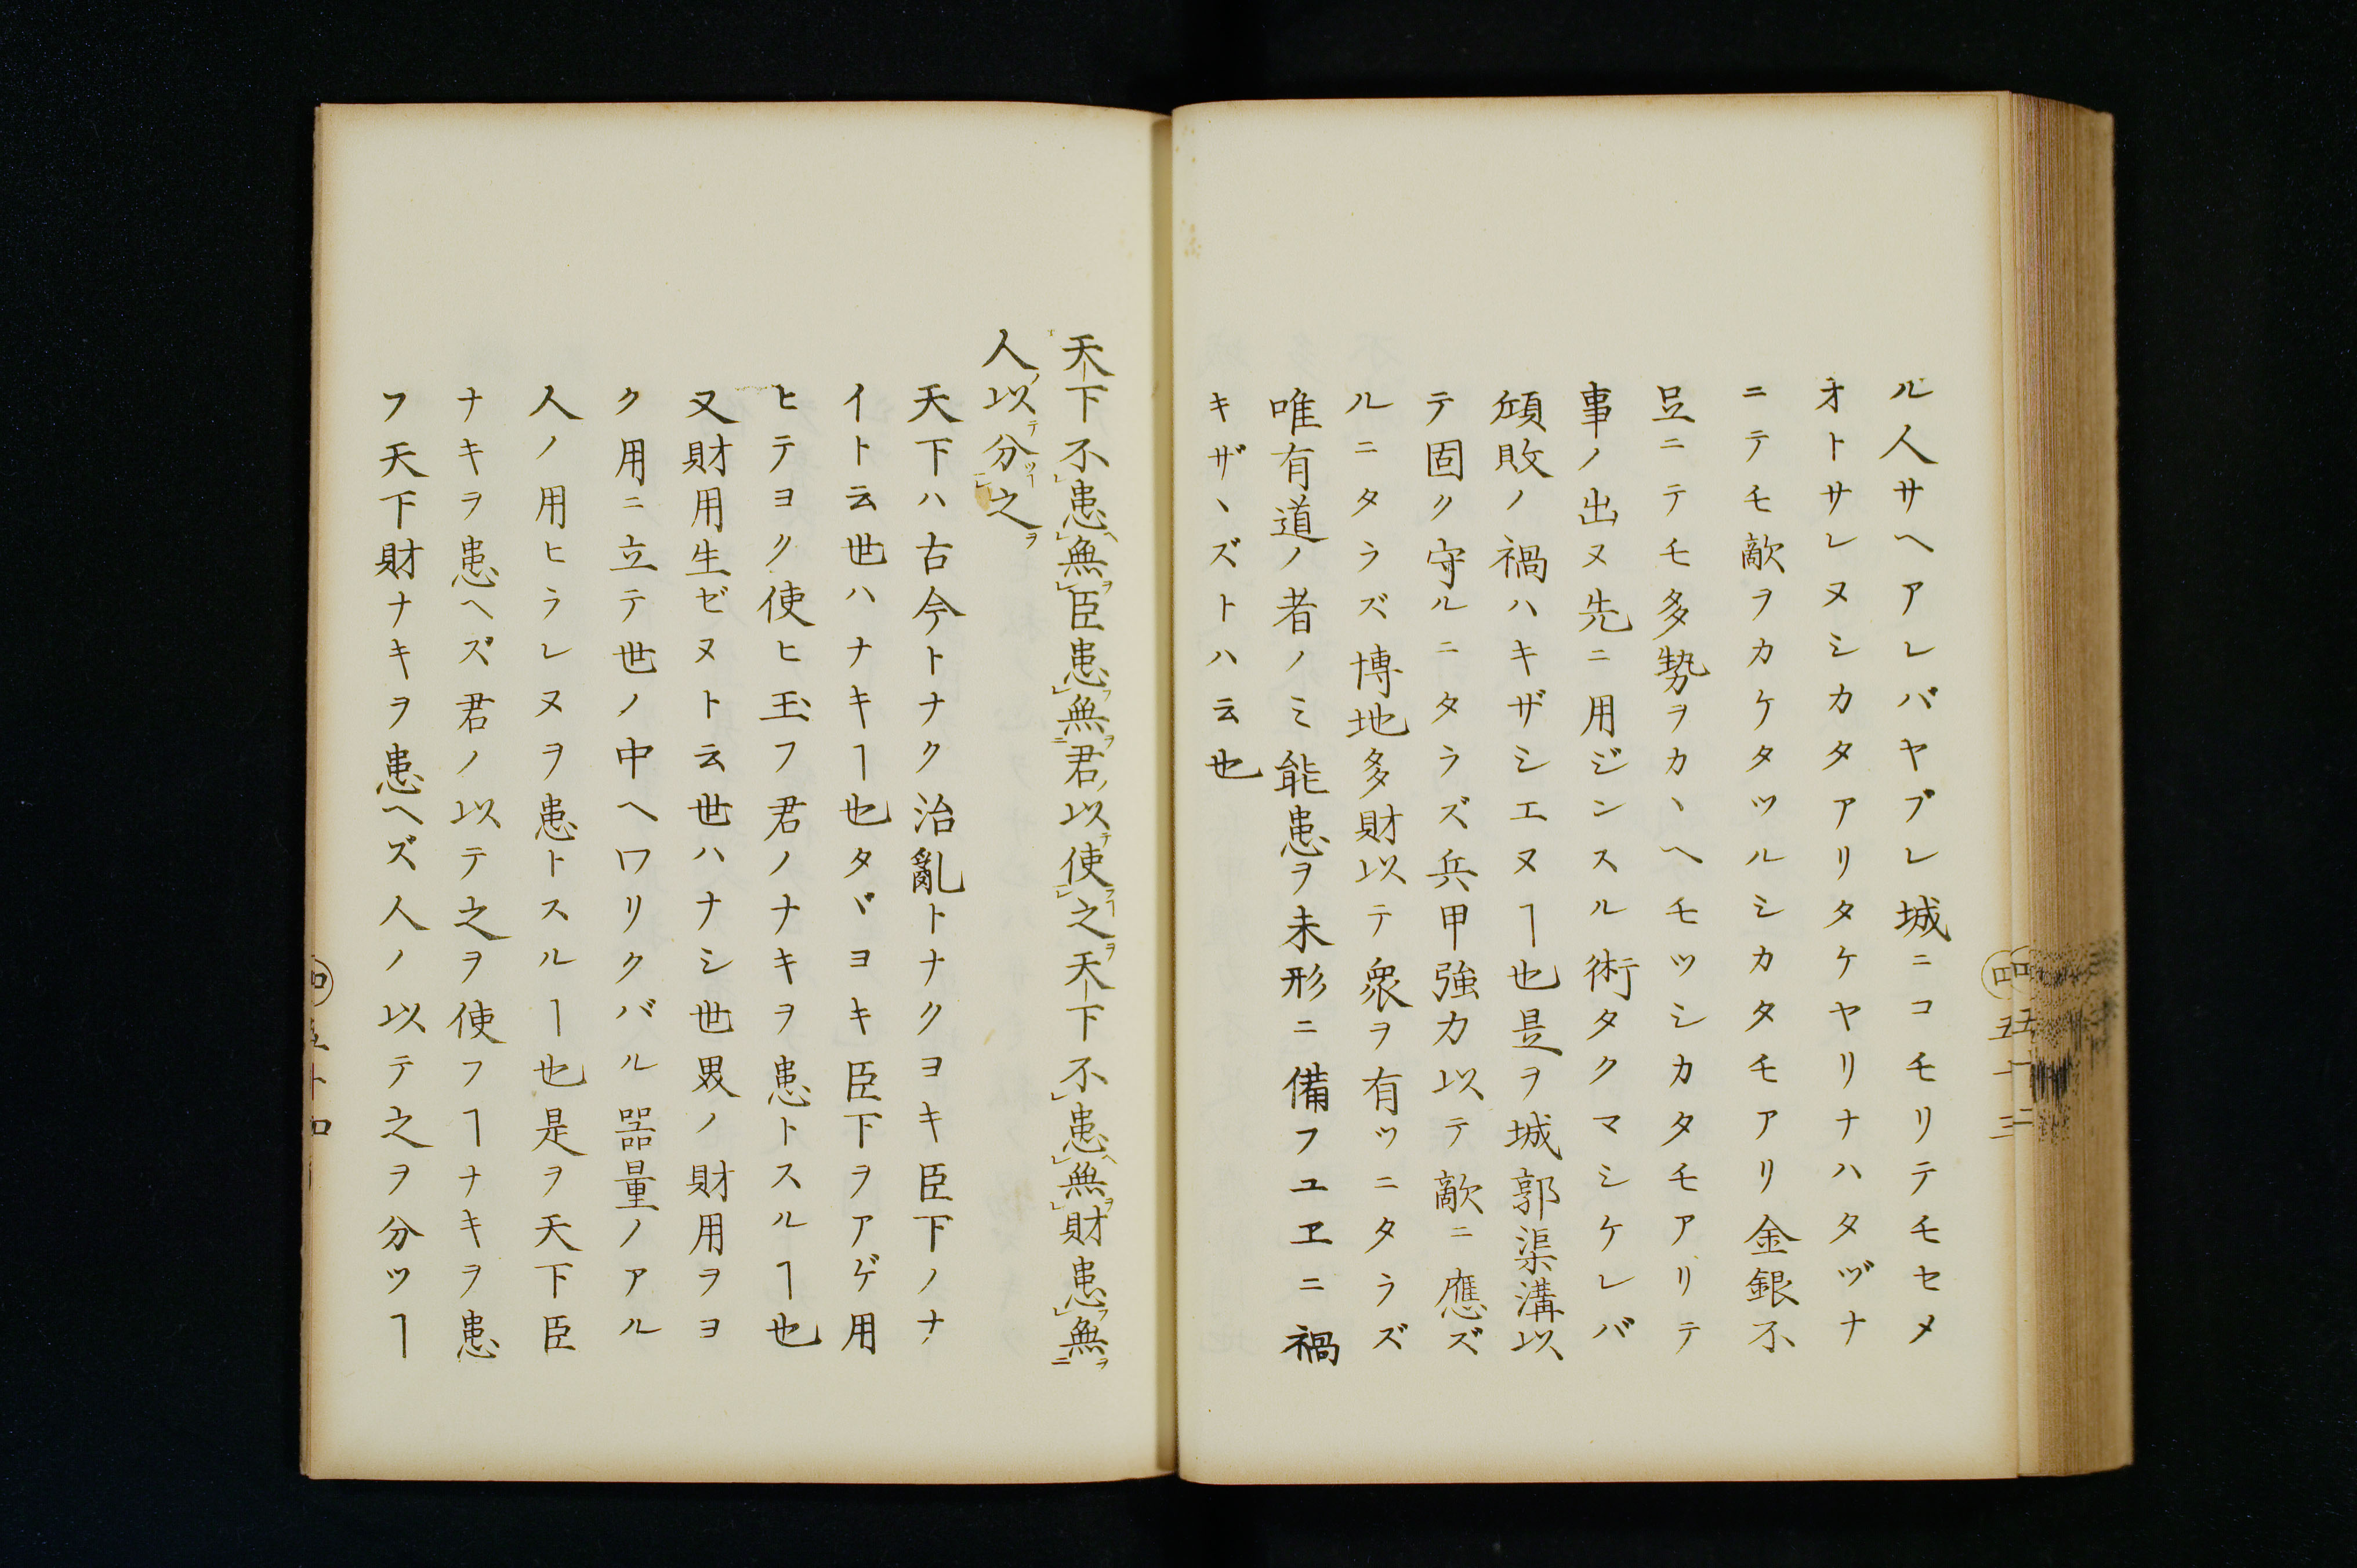 ル人サヘアレバヤブレ城ニコモリテモセメ
オトサレヌシカタアリタケヤリナハタヅナ
ニテモ敵ヲカケタツルシカタモアリ金銀不
足ニテモ多勢ヲカヽヘモツシカタモアリテ
事ノ出ヌ先ニ用ジンスル術タクマシケレバ
傾敗ノ禍ハキザシエヌヿ也是ヲ城郭渠溝以
テ固ク守ルニタラズ兵甲強力以テ敵ニ應ズ
ルニタラズ博地多財以テ衆ヲ有ツニタラズ
唯有道ノ者ノミ能患ヲ未形ニ備フユヱニ禍
キザヽズトハ云也
天下不患無臣患無君以使之天下不患無財患無
人以分之
天下ハ古今トナク治亂トナクヨキ臣下ノナ
イト云世ハナキヿ也タヾヨキ臣下ヲアゲ用
ヒテヨク使ヒ玉フ君ノナキヲ患トスルヿ也
又財用生ゼヌト云世ハナシ世界ノ財用ヲヨ
ク用ニ立テ世ノ中ヘワリクバル器量ノアル
人ノ用ヒラレヌヲ患トスルヿ也是ヲ天下臣
ナキヲ患ヘズ君ノ以テ之ヲ使フヿナキヲ患
フ天下財ナキヲ患ヘズ人ノ以テ之ヲ分ツヿ
四 五十三